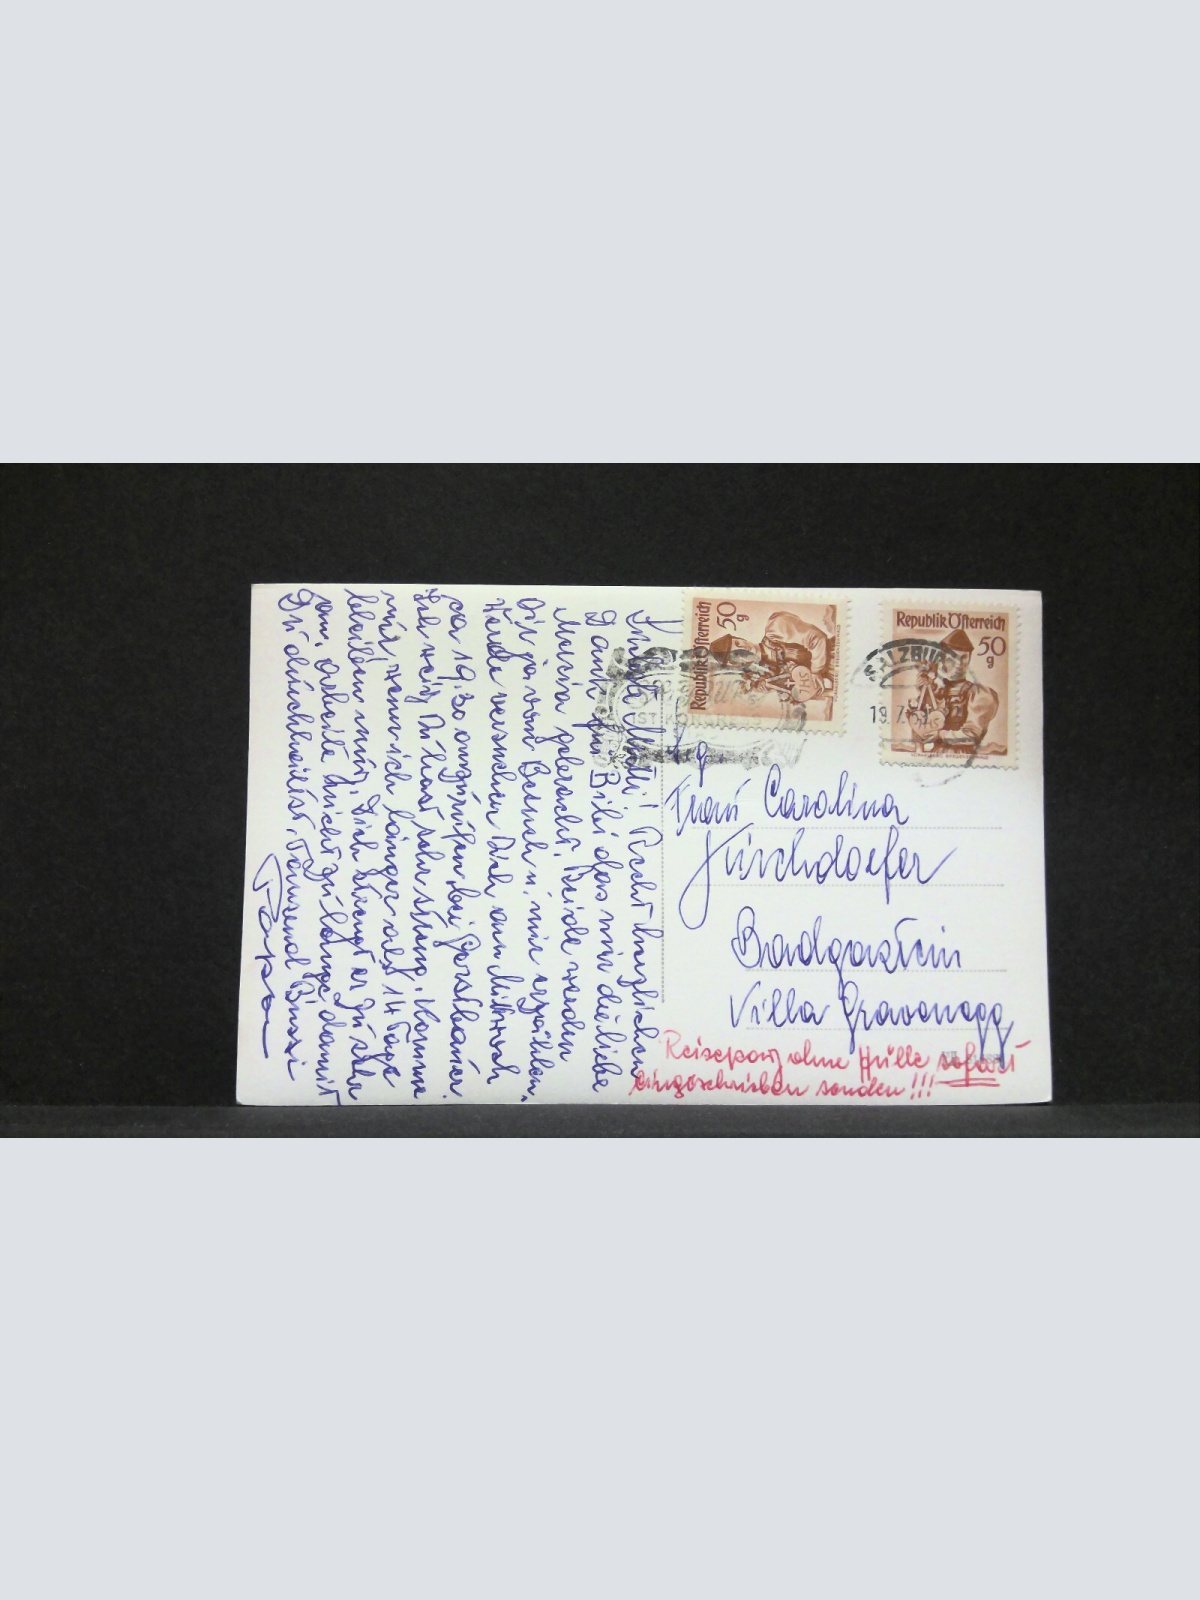 Liebste Mutti! Recht herzlichen
Dank für Bild das mir die liebe
Maria gebracht. Beide werden
Dir ja vom Besuch u. mir erzählen.
Werde versuchen Dich am Mittwoch
ca 19.30 anzurufen bei
Ich weiß Du hast sehr streng. Komme
mir, wenn ich länger als 14 Tage
bleiben muß, Dich strengt es zu sehr
an. Arbeite nicht zu lange damit
Du durchhältst. Tausend Bussi
Papa
Republik Österreich
50
g
Republik Österreich
50
g
SALZBURG
19.7.
IST KONGRE
Frau Carolina
Badgastein
Villa Gravenegg
Reisepass ohne Hülle sofort
eingeschrieben senden!!!